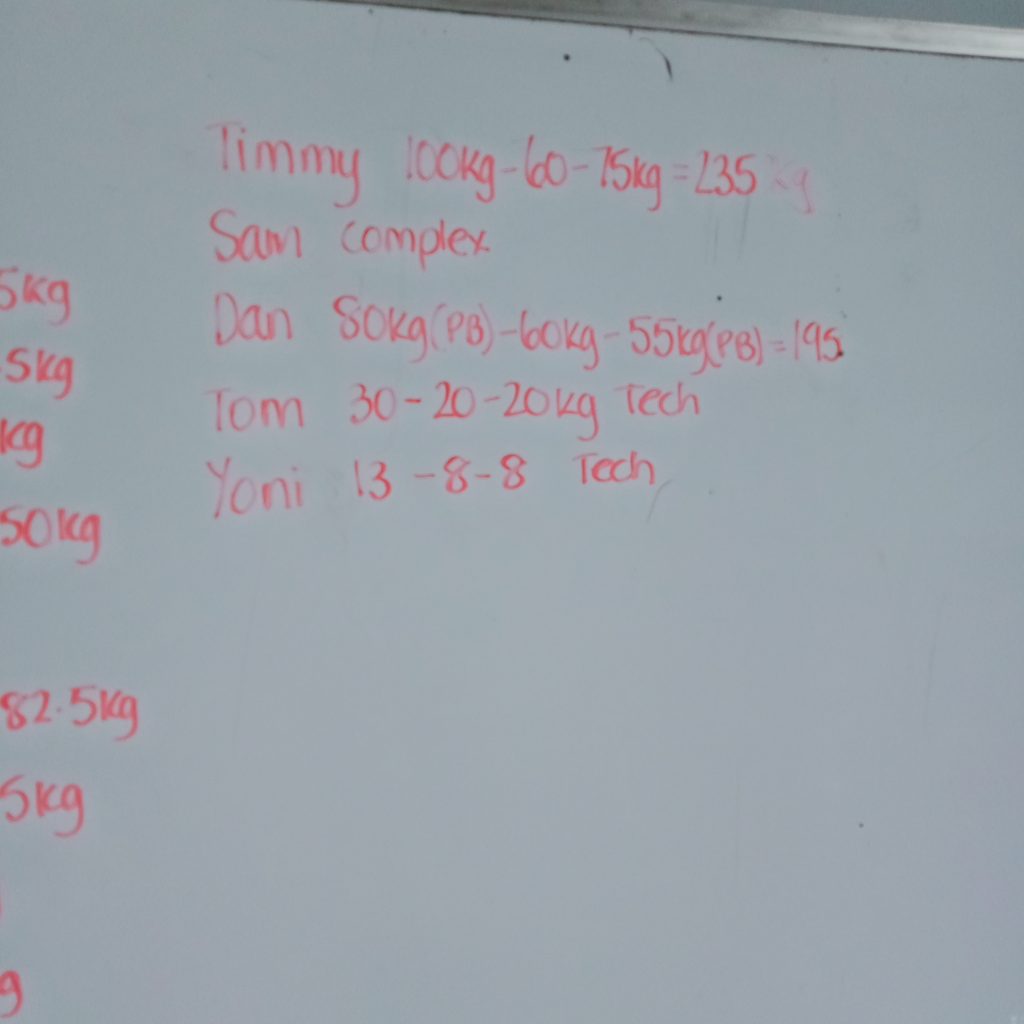 Timmy 100kg-60-75kg=235 kg
Sam complex
Dan 80kg(PB)-60kg-55kg(PB)=195
Tom 30-20-20kg Tech
Yoni 13-8-8 Tech
5kg
.5kg
kg
50kg
82.5kg
5kg
g